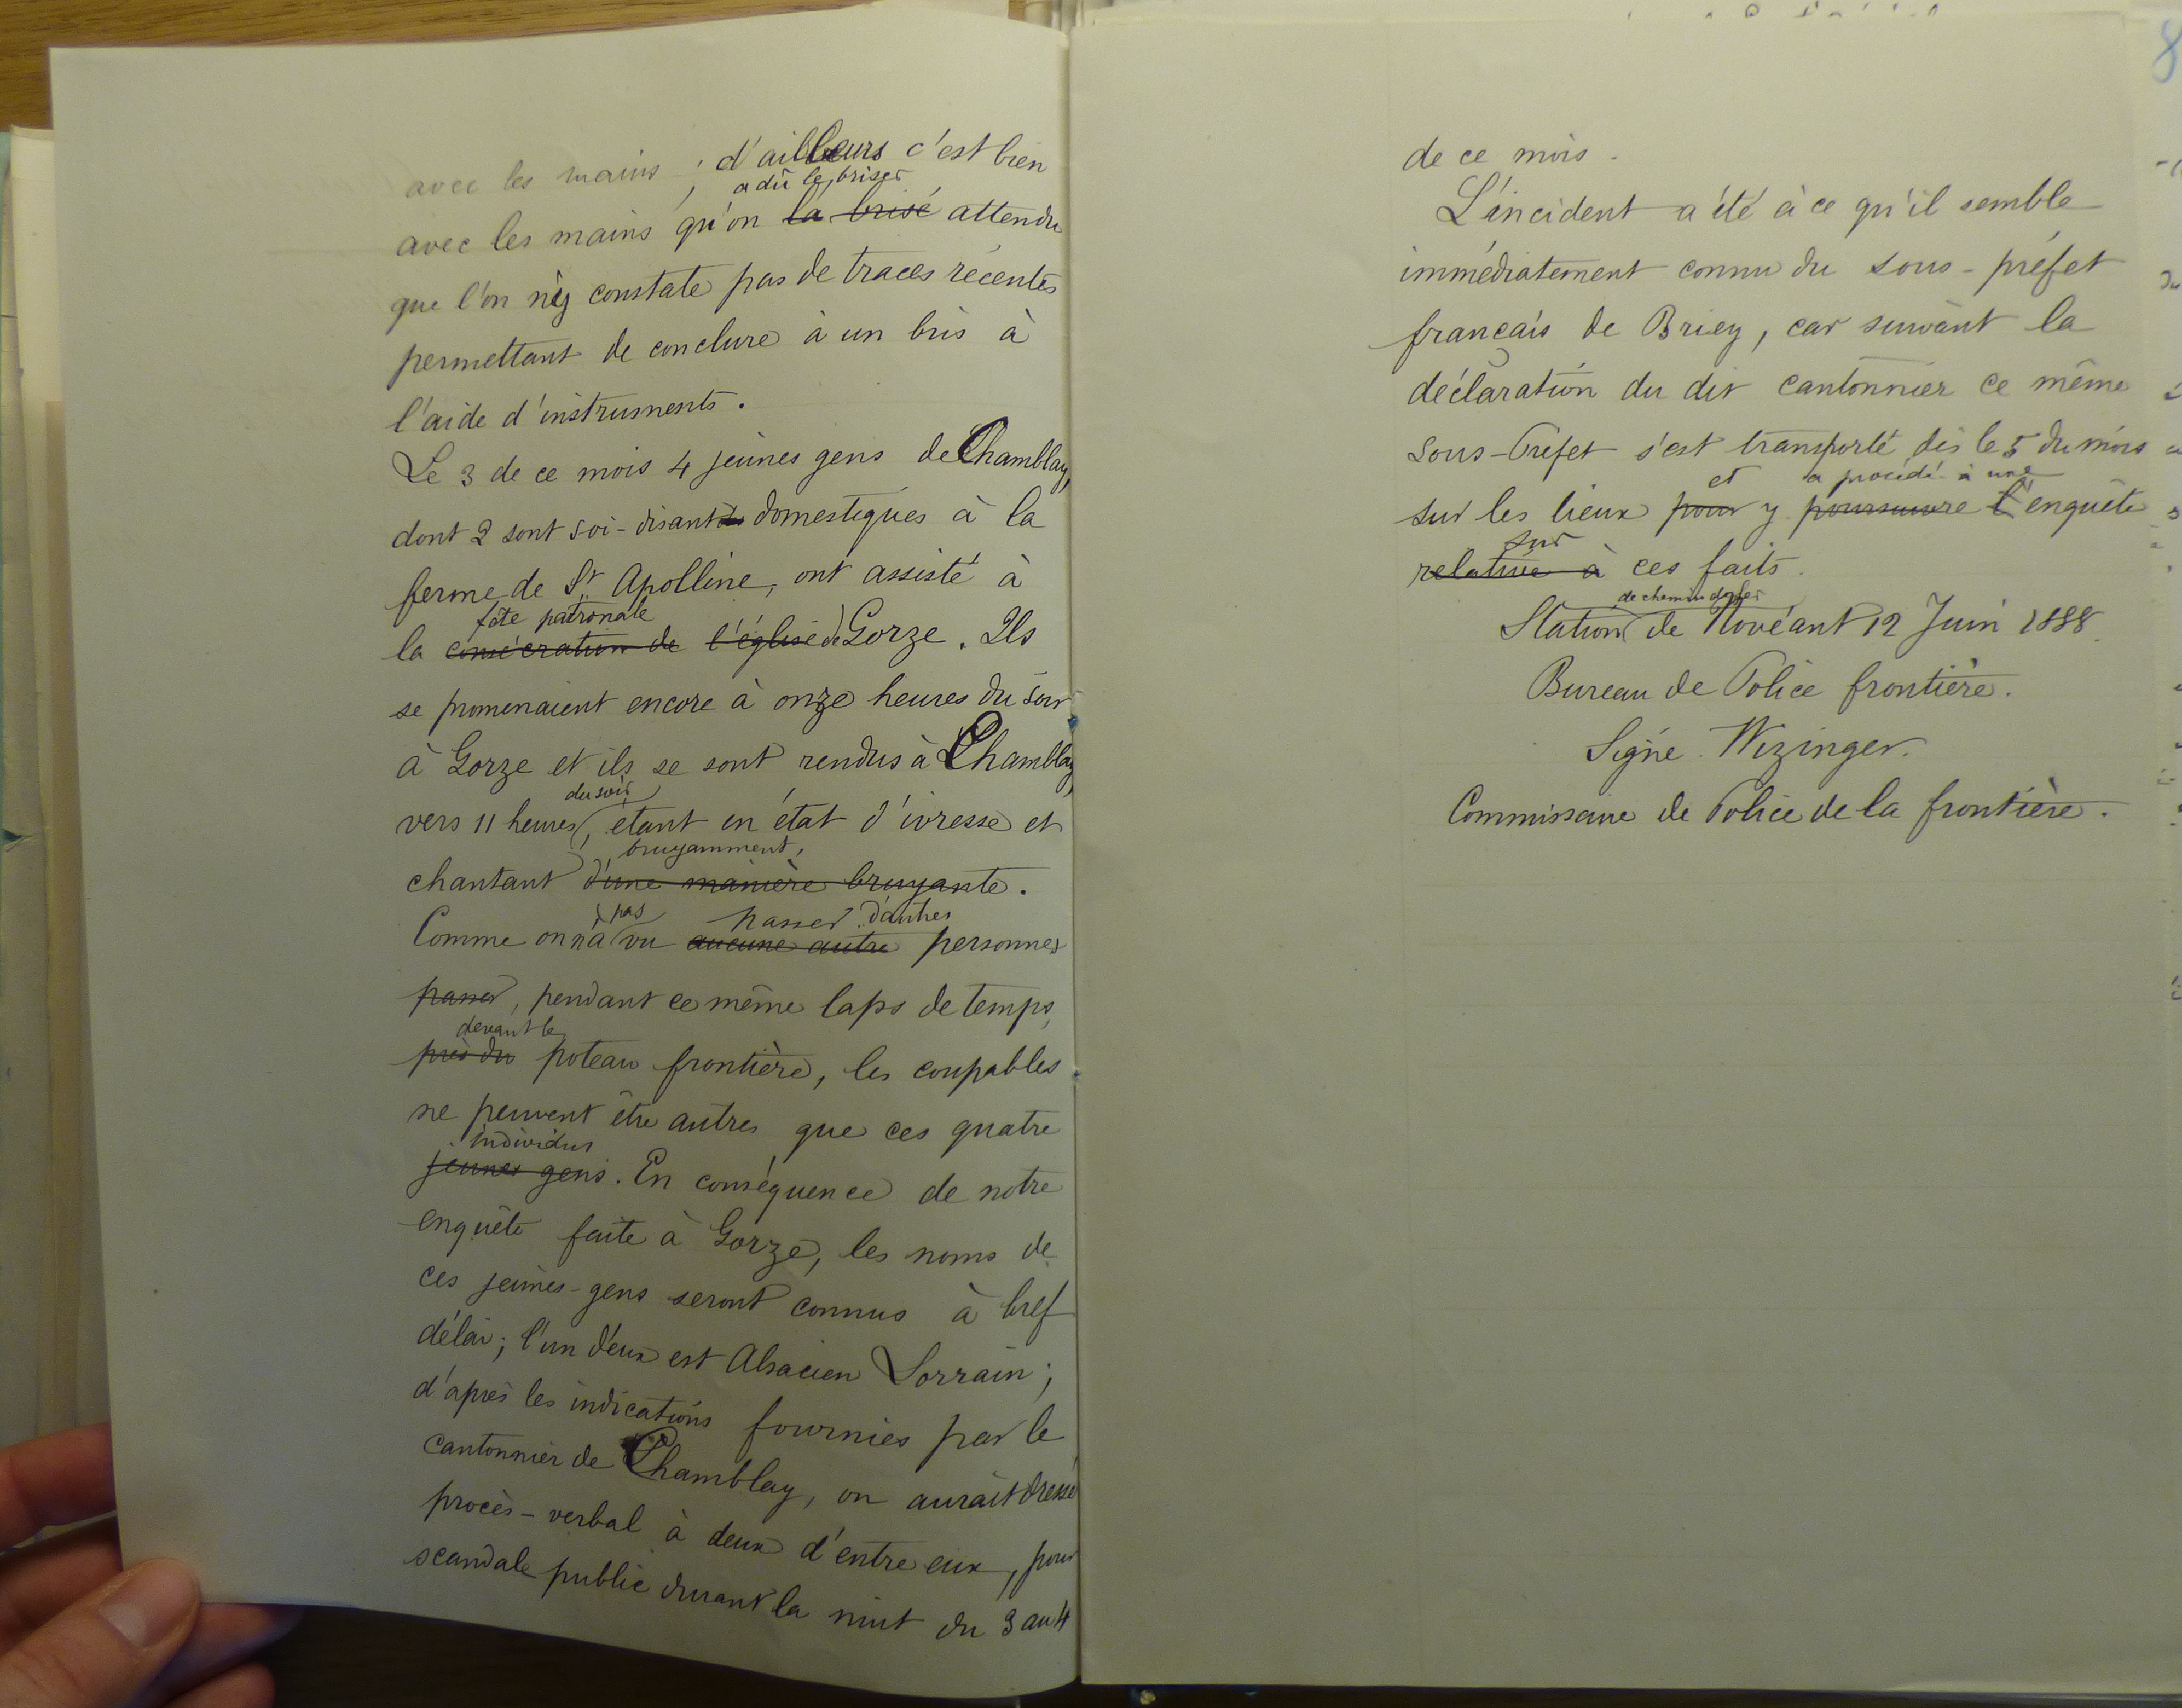 avec les mains ; d'ailleurs c'est bien
a dû le briser
avec les mains qu'on la brisé attendu
que l'on n'y constate pas de traces récentes
permettant de conclure à un bris à
l'aide d'instruments.
Le 3 de ce mois 4 jeunes gens de Chambley,
dont 2 sont soi-disant domestiques à la
ferme de St Apolline, ont assisté à
fête patronale
la consécration de l'église de Gorze. Ils
se promenaient encore à onze heures du soir
à Gorze et ils se sont rendus à Chambley
du soir
vers 11 heures, étant en état d'ivresse et
bruyamment,
chantant d'une manière bruyante.
pas passer d'autres
Comme on n'a vu aucune autre personnes
passer, pendant ce même laps de temps,
devant le
près du poteau frontière, les coupables
ne peuvent être autres que ces quatre
individus
jeunes gens. En conséquence de notre
enquête faite à Gorze, les noms de
ces jeunes-gens seront connus à bref
délai; l'un d'eux est Alsacien Lorrain;
d'après les indications fournies par le
cantonnier de Chambley, on aurait dressé
procès-verbal à deux d'entre eux, pour
scandale public durant la nuit du 3 au 4
de ce mois.
L'incident a été à ce qu'il semble
immédiatement connu du sous-préfet
français de Briey, car suivant la
déclaration du dit cantonnier ce même
Sous-Préfet s'est transporté dès le 5 du mois
et a procédé à une
sur les lieux pour y poursuivre l'enquête
sur
relative à ces faits.
de chemin de fer
Station de Novéant 12 Juin 1888.
Bureau de Police frontière.
Signé. Wizinger.
Commissaire de Police de la frontière.
8